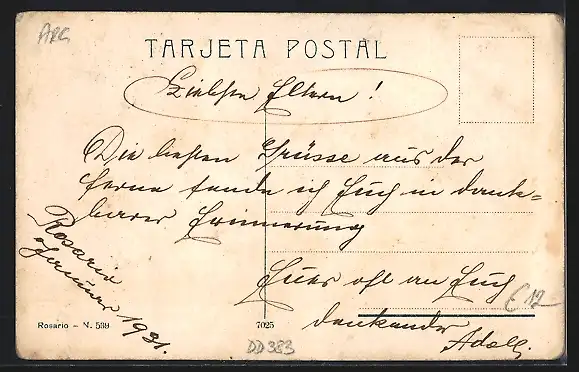 ARG
TARJETA POSTAL
Liebsten Eltern!
Die besten Grüsse aus der
ferne sende ich Euch in dank=
barer Erinnerung
Euer oft an Euch
denkender
Adolf.
Rosario
Januar 1931.
€12
Rosario - N. 599
7025
DD383